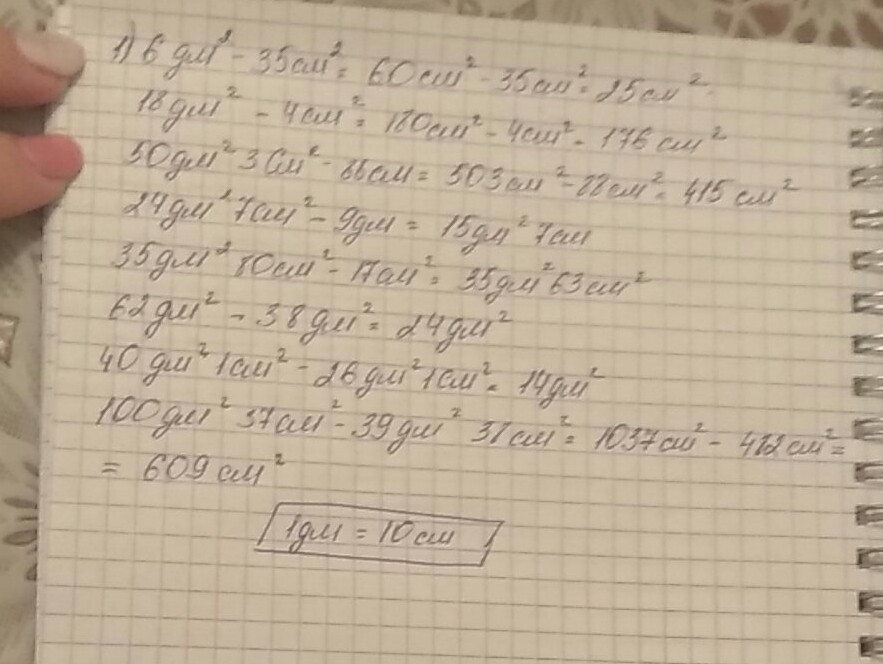 1) 6 дм² - 35см² = 60см² - 35см² = 25см².
18дм² - 4см² = 180см² - 4см² = 176см²
50дм² 3см² - 88см = 503см² - 88см² = 415см²
24дм² 7см² - 9дм = 15дм² 7см
35дм² 80см² - 17см² = 35дм² 63см²
62дм² - 38дм² = 24дм²
40дм² 1см² - 26дм² 1см² = 14дм²
100дм² 37см² - 39дм² см² = 1037см² - см² =
= 609см²
1дм = 10см